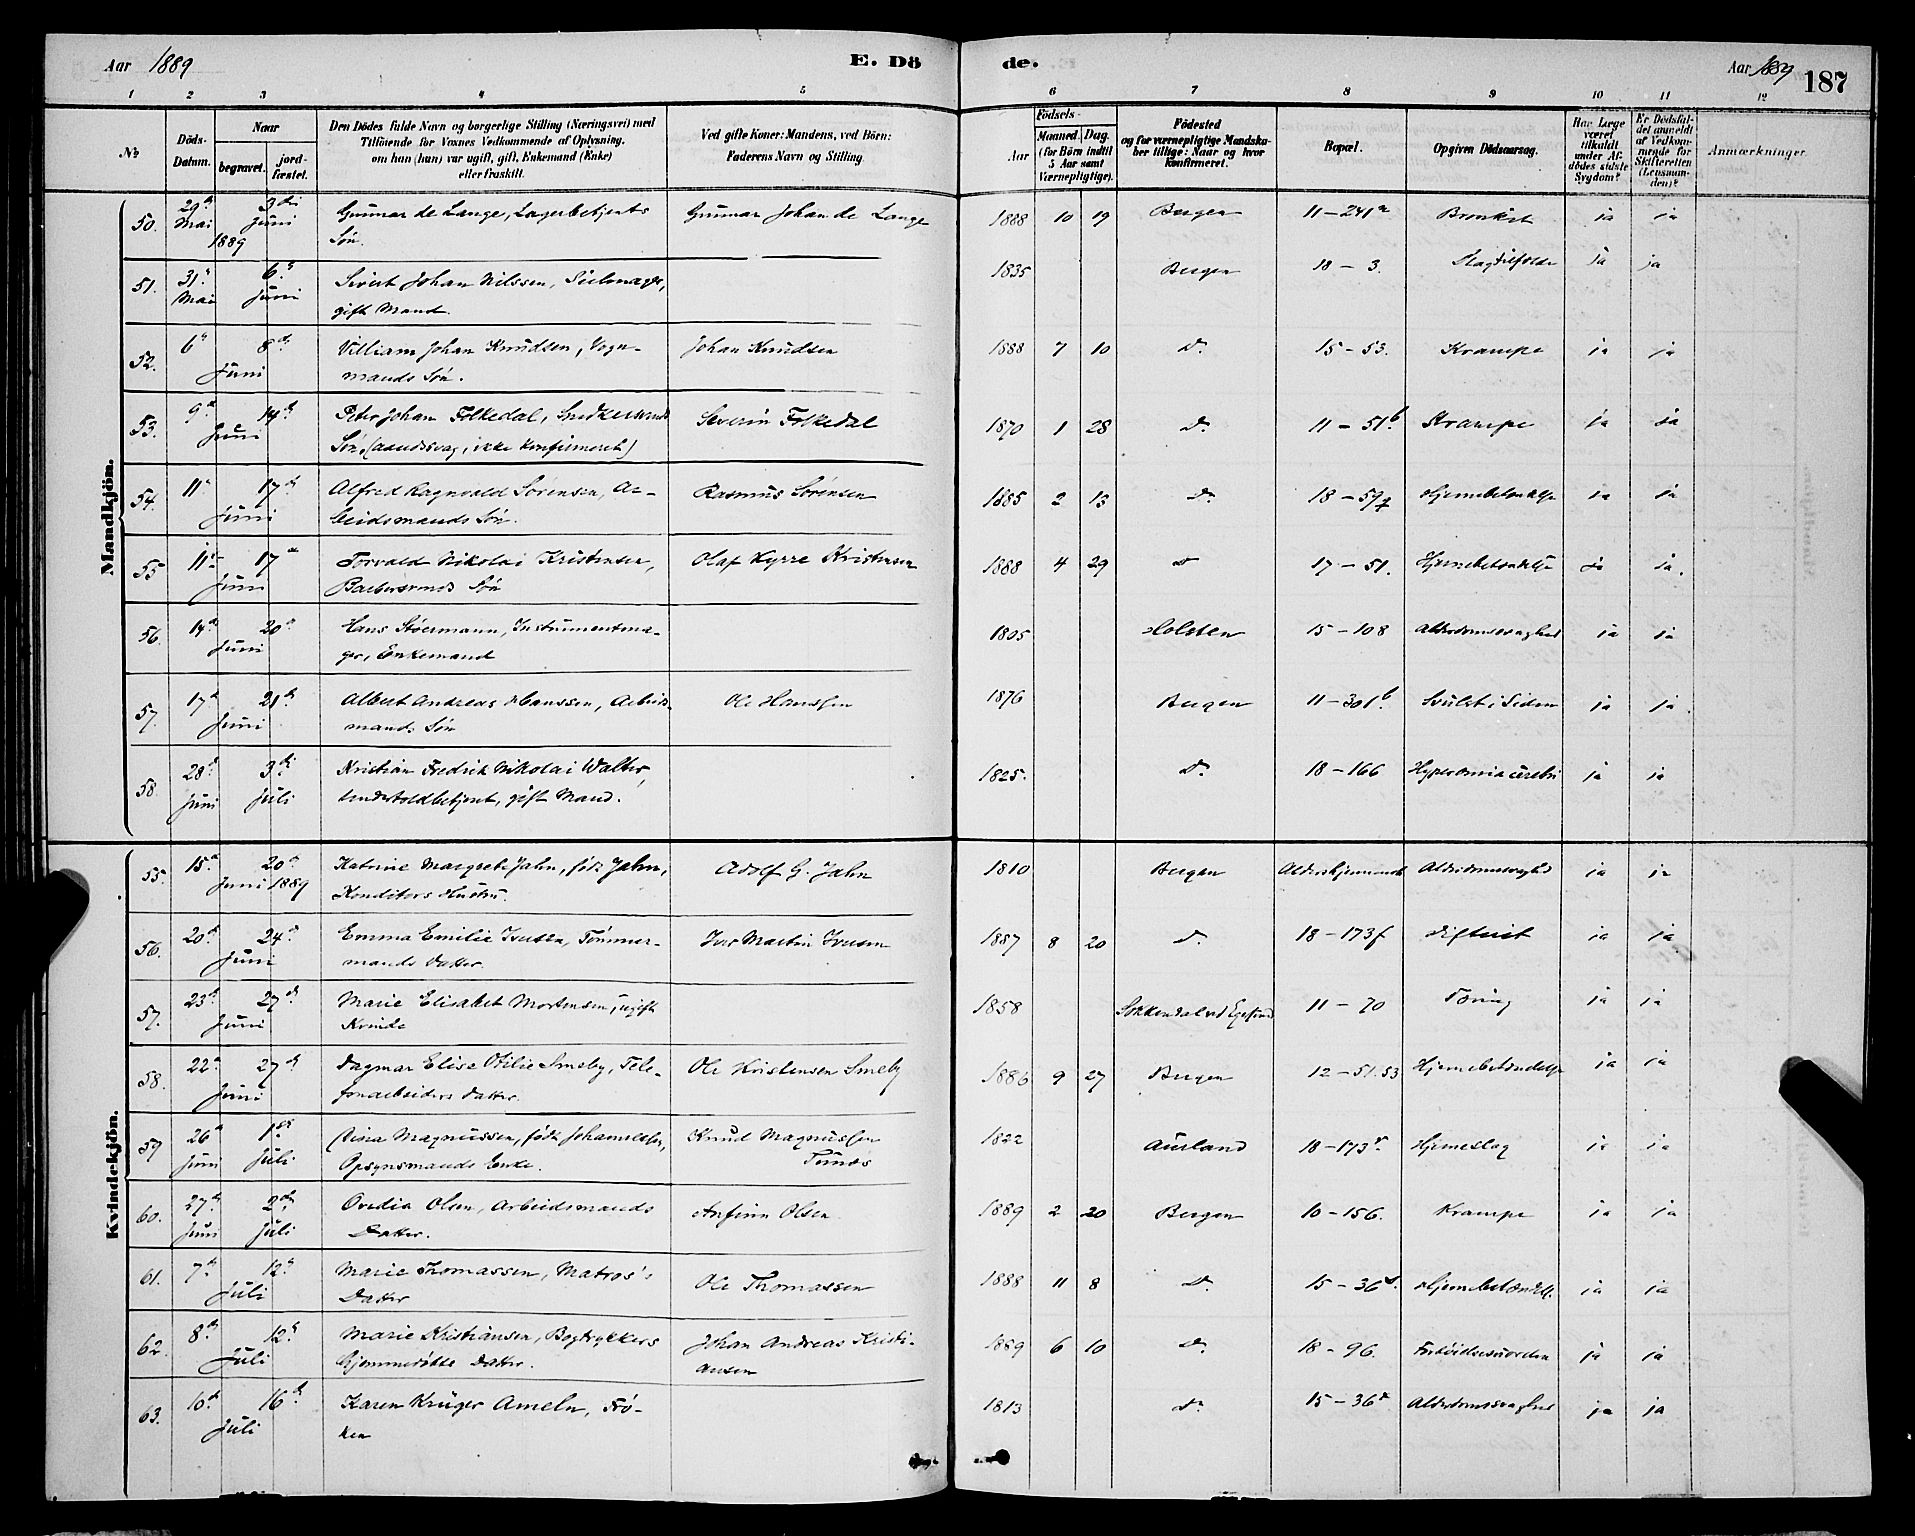 Aar 1889
E. Dö
de.
Aar 1889
187
1 2 3 4 5 6 7 8 9 10 11 12
No
Döds-
Datum.
Naar
begravet.
jord-
fæstet.
Den Dödes fulde Navn og borgerlige Stilling (Næringsvei) med
Tilföiende for Voxnes Vedkommende af Oplysning,
om han (hun) var ugift, gift, Enkemand (Enke)
eller fraskilt.
Ved gifte Koner: Mandens, ved Börn:
Faderens Navn og Stilling.
Födsels-
Aar
Maaned.
Dag.
(for Börn indtil
5 Aar samt
Værnepligtige).
Födested
og for værnepligtige Mandska-
ber tillige: Naar og hvor
konfirmeret.
Bopæl.
Opgiven Dödsaarsag.
Har Læge
været
tilkaldt
under Af-
dödes sidste
Sygdom?
Er Dödsfal-
det anmeldt
af Vedkom-
mende for
Skifteretten
(Lensman-
den)?
Anmærkninger.
Mandkjön.
50. 29de Mai 1889 3die Juni Gunnar de Lange, Lagerbetjents Gunnar Johan de Lange 1888 10 19 Bergen 11 – 241a Bronkit ja ja
Søn.
51. 31te Mai 6te Juni Sivert Johan Nilssen, Seilmager, 1835 Bergen 18 – 3. Slagtilfælde ja ja
gift Mand.
52. 6te 8de Juni Villiam Johan Knudsen, Vogn- Johan Knudsen 1888 7 10 Do 15 – 53. Krampe ja ja
mands Søn.
53. 9de 14de Juni Peter Johan Folkedal, Snedkersvends Severin Folkedal 1870 1 28 Do 11 – 51b Krampe ja ja
Søn, (aandssvag, ikke konfirmeret)
54. 11te 17de Juni Alfred Ragnvald Sørensen, Ar- Rasmus Sørensen 1885 2 13 Do 18 – 59 Hjernebetændelse ja ja
beidsmands Søn.
55 11te 17de Juni Torvald Nikolai Kristensen, Olaf Kyrre Kristensen 1888 4 29 Do 17 – 51. Hjernebetændelse ja ja.
Barbersvends Søn
56. 14de 20de Juni Hans Støermann, Instrumentma- 1805 Holsten 15 – 108 Alderdomssvaghed ja ja
ger, Enkemand
57. 17de 21de Juni Albert Andreas Hanssen, Arbeids- Ole Hanssen 1876 Bergen 11 – 301b Svulst i Siden ja ja.
mands Søn
58. 28de Juni 3die Juli Kristian Fredrik Nikolai Walter, 1825. Do 18 – 166 Hyperæmia cerebri ja ja
Undertoldbetjent, gift Mand.
Kvindekjön.
55. 15de 20de Juni 1889 Katrine Margrete Jahn, født Jahn, Adolf G. Jahn 1810 Bergen Aldershjemmet Alderdomssvaghed ja ja
Konditors Hustru.
56. 20de 24de Juni Emma Emilie Iversen, Tømmer- Iver Martin Iversen 1887 8 20 Do 18 – 173f Difterit ja ja
mands Datter.
57. 23de 27de Juni Marie Elisabet Mortensen, ugift 1858 Sokkendal ved Egersund 11 – 70 Tæring ja ja
Kvinde
58. 22de 27de Juni Dagmar Elise Otilie Smeby, Tele- Ole Kristensen Smeby 1886 9 27 Bergen 12 – 51.53 Hjernebetændelse ja ja
fonarbeiders Datter.
59 26de Juni 1ste Juli Magnussen, født Johannessen, Knud Magnussen 1822 Aurland 18 – 173 Hjerneslag ja ja
Opsynsmands Enke.
60. 27de Juni 2den Juli Ovedia Olsen, Arbeidsmands Anfinn Olsen 1889 2 20 Bergen 10 – 156. Krampe ja ja
Datter.
61. 7de 12te Juli Marie Thomassen, Matros's Ole Thomassen 1888 11 8 Do 15 – 36d. Hjernebetændelse ja ja
Datter
62. 8de 12te Juli Marie Kristiansen, Bogtrykkers Johan Andreas Kristi- 1889 6 10 Do 18 – 96. ja ja
hjemmedøbte Datter. ansen
63. 10de 16de Juli Karen Krüger Ameln, Frø- 1813 Do 15 – 36 Alderdomssvaghed ja ja
ken